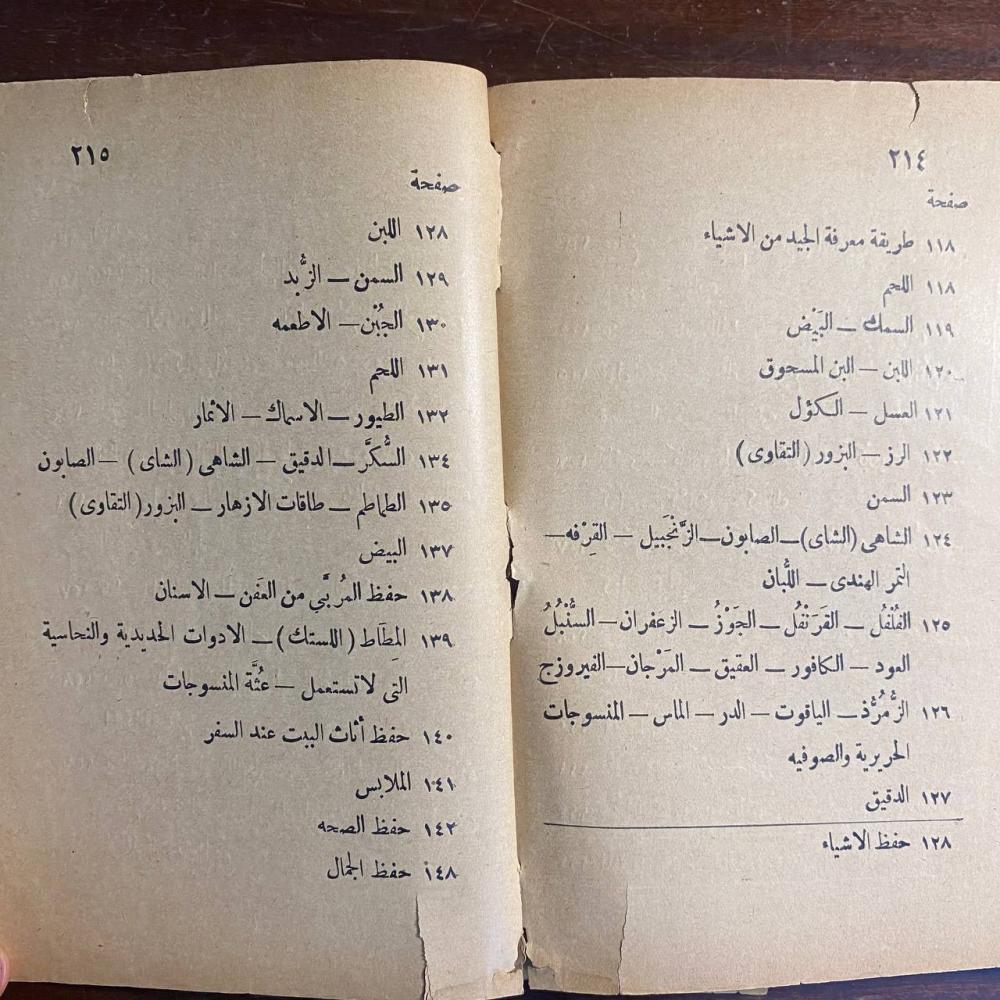 ٢١٤
صفحة
١١٨ طريقة معرفة الجيد من الاشياء
١١٨ اللحم
١١٩ السمك — البَيْض
١٢٠ اللبن — البن المسحوق
١٢١ العسل — الكؤل
١٢٢ الرز — البزور (التقاوى)
١٢٣ السمن
١٢٤ الشاهى (الشاى) — الصابون — الزَّنْجَبيل — القِرْفه —
التمر الهندى — اللُّبان
١٢٥ الفُلْفُل — القَرَنْفُل — الجَوْزُ — الزعفران — السنُّبُلُ
العود — الكافور — العقيق — المَرْجان — الفيروزج
١٢٦ الزُّمُرُّذ — الياقوت — الدر — الماس — المنسوجات
الحريرية والصوفيه
١٢٧ الدقيق
١٢٨ حفظ الاشياء
٢١٥
صفحة
١٢٨ اللبن
١٢٩ السمن — الزُّبد
١٣٠ الجُبْن — الاطعمه
١٣١ اللحم
١٣٢ الطيور — الاسماك — الاثمار
١٣٤ السُّكَّر — الدقيق — الشاهى (الشاى) — الصابون
١٣٥ الطماطم — طاقات الازهار — البزور (التقاوى)
١٣٧ البيض
١٣٨ حفظ المُربَّي من العَفَن — الاسنان
١٣٩ المِطَاط (اللستك) — الادوات الحديدية والنحاسية
التى لا تستعمل — عُثَّة المنسوجات
١٤٠ حفظ أثاث البيت عند السفر
١٤١ الملابس
١٤٢ حفظ الصحه
١٤٨ حفظ الجمال